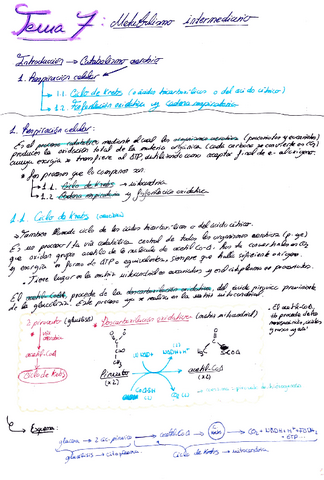 Tema 7: Metabolismo intermediario
Introducción → Catabolismo aerobio
1. Respiración celular
1.1. Ciclo de Krebs (ácidos tricarboxílicos o del ácido cítrico)
1.2. Fosforilación oxidativa y cadena respiratoria
1. Respiración celular:
Es el proceso catabólico mediante el cual los organismos aerobios (procariotas y eucariotas)
produce la oxidación total de la materia orgánica (cada carbono se convierte en CO2)
cuya energía se transfiere al ATP, utilizando como aceptor final de e- al oxígeno.
Los procesos que lo componen son:
1.1. Ciclo de Krebs → mitocondria
1.2. Cadena respiratoria y fosforilación oxidativa
1.1. Ciclo de Krebs
También llamado ciclo de los ácidos tricarboxílicos o del ácido cítrico.
Es un proceso / la vía catabólica central de todos los organismos aerobios
que oxidan grupos acetilo de la molécula de acetil-CoA.
y energía en forma de ATP o equivalentes, siempre que halla suficiente oxígeno.
Tiene lugar en la matriz mitocondrial en eucariotas y en el citoplasma en procariotas.
El acetil-CoA, procede de la descarboxilación oxidativa, del ácido pirúvico proveniente
de la glucólisis. Este proceso ya se realiza en la matriz mitocondrial.
2 pirúvico (glucólisis)
Descarboxilación oxidativa (matriz mitocondrial)
acetil-CoA
Ciclo de Krebs
Piruvato
(x2)
NAD+
NADH+H+
CoA-SH
CO2
acetil-CoA
(x2)
El acetil-CoA,
Esquema:
glucosa → 2 ac. pirúvico → acetil-CoA → → CO2 + NADH + H+ + FADH2
+ GTP
glucólisis → citoplasma
Ciclo de Krebs → mitocondria